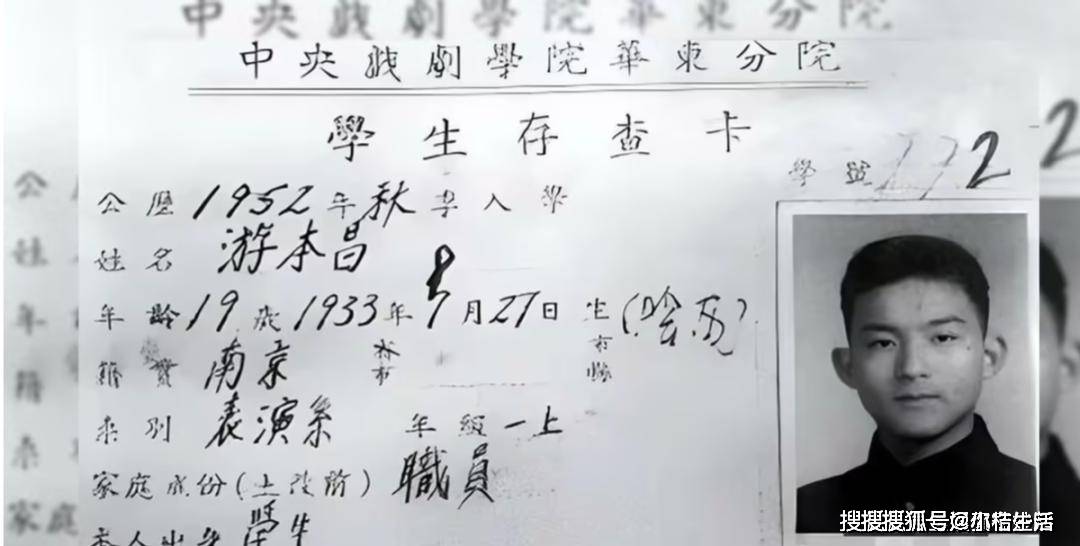 中央戲劇學院華東分院
中央戲劇學院華東分院
學生存查卡
學號 172
公歷1952年秋季入學
姓名 游本昌
年齡19歲1933年8月27日生(陰历)
籍貫 南京 市 市縣
系別 表演系 年級一上
家庭成份(土改前) 職員
本人出身 學生
搜狐号@